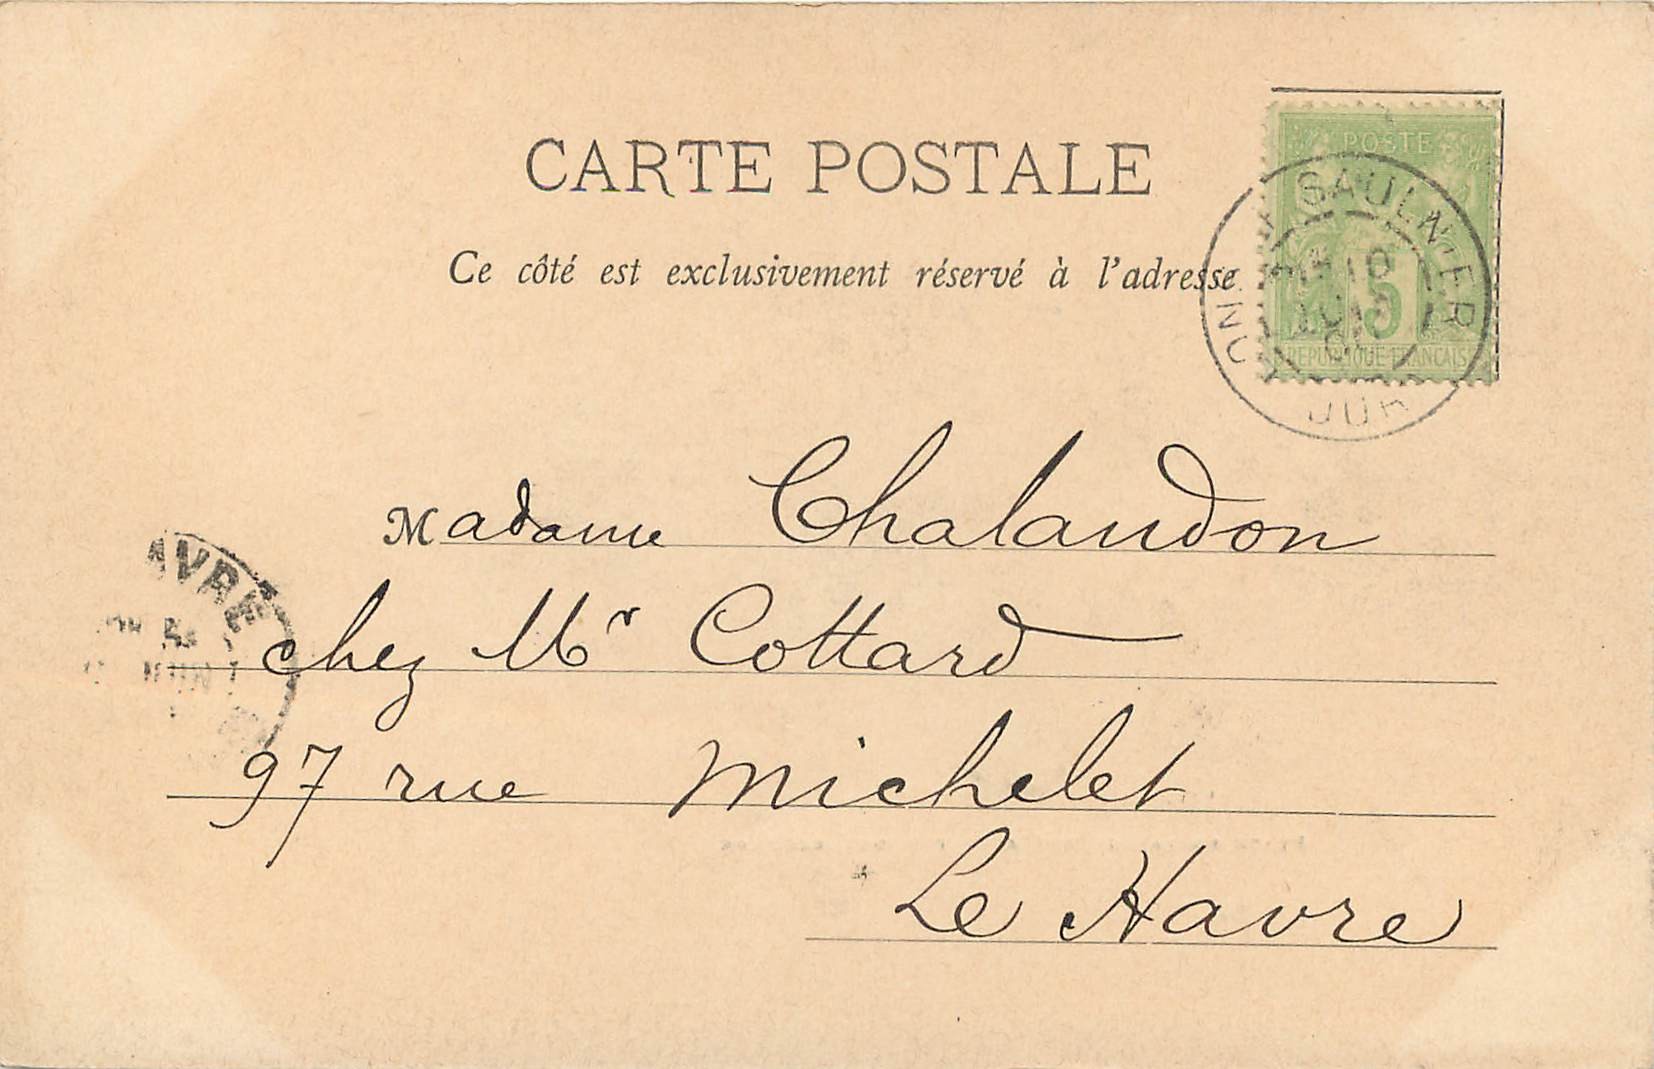 CARTE POSTALE
Ce côté est exclusivement réservé à l'adresse
POSTE
5
REPUBLIQUE FRANCAISE
LONS-LE-SAULNIER
JURA
Madame Chalandon
chez Mr Cottard
97 rue Michelet
Le Havre
HAVRE